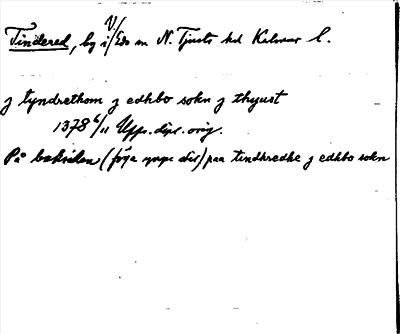 Tindered, by i V/Edo sn N. Tjusts hd Kalmar l.
j tyndrethom j edhbo sokn j thyust
1378 6/11 Upps. dipl. orig.
På baksidan (föga yngre stil) paa tindhredhe j edhbo sokn